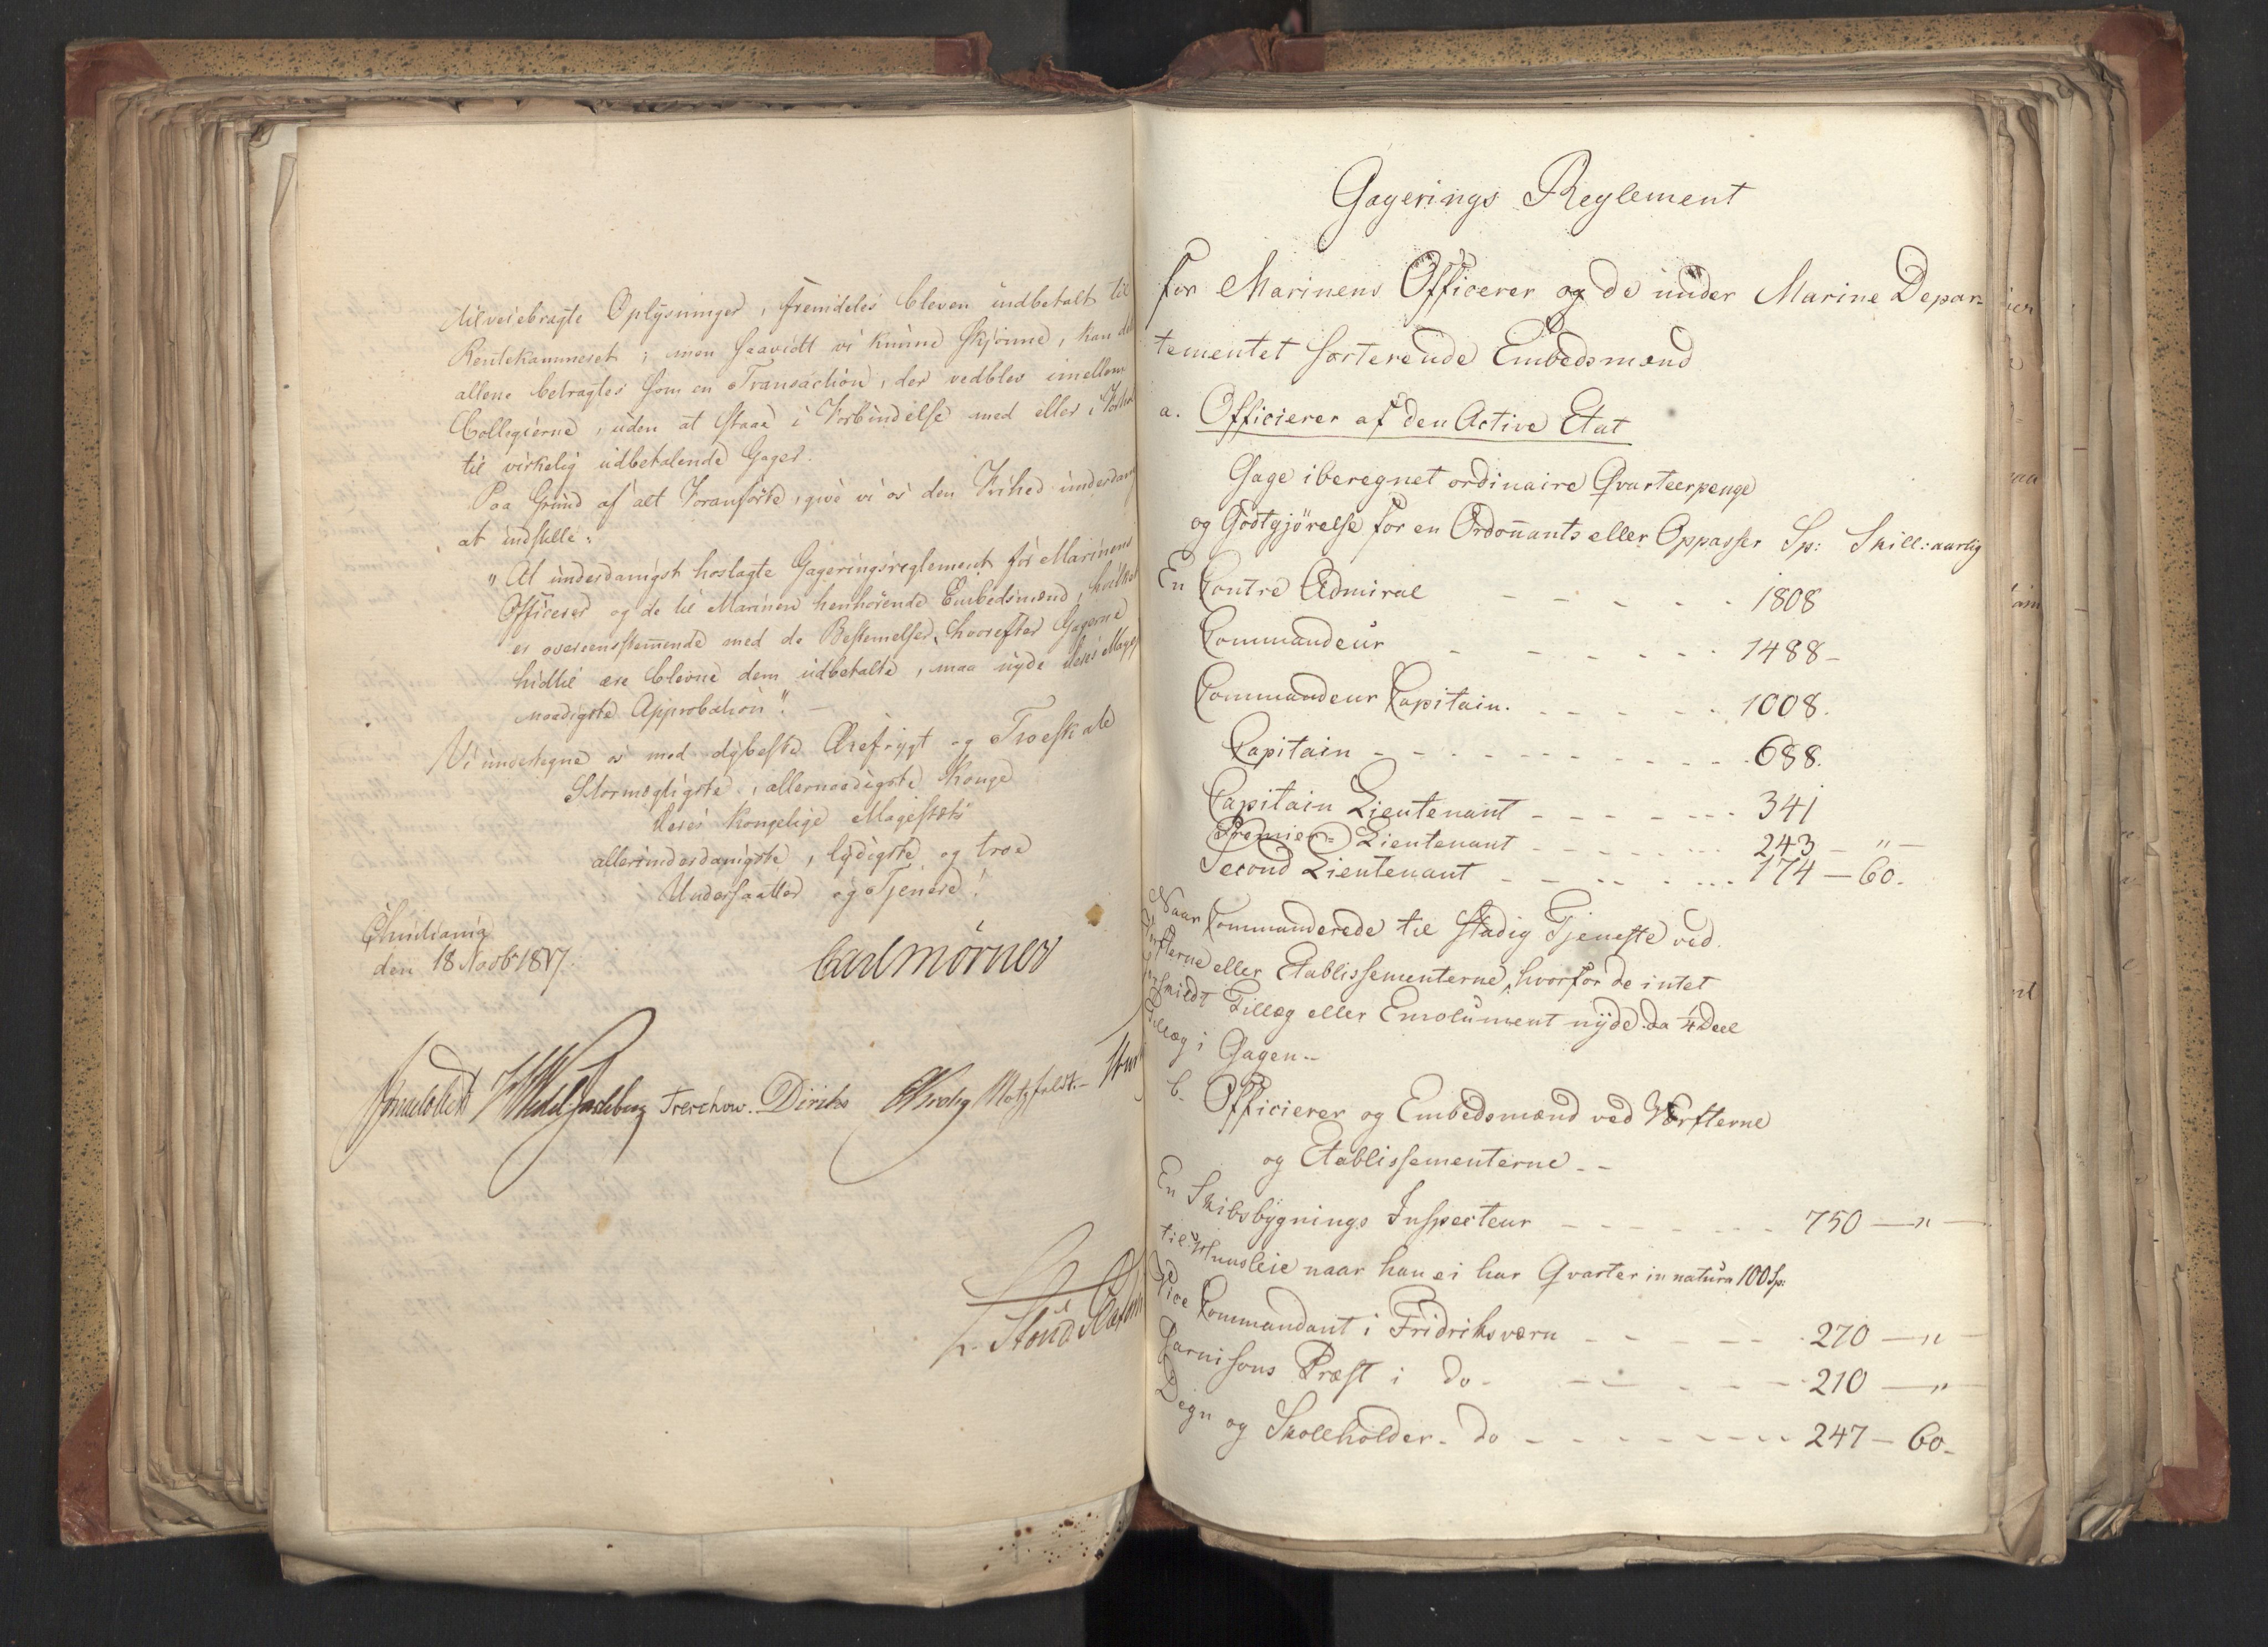 tilveiebragte Oplysninger, fremdeles bleven indbetalt til
Rentekammeret; men saavidt vi kunne skjønne, kan det
allene betragtes som en Transaction, der vedblev imellem
Collegierne, uden at staae i Forbindelse med eller i
til virkelig udbetalende Gager.
Paa Grund af alt Foranførte, give vi os den Frihed underdan
at indstille:
"At underdanigst hoslagte Gageringsreglement for Marinens
Officerer og de til Marinen henhørende Embedsmænd, hvilket
er overeensstemende med de Bestemelser, hvorefter Gagerne
hidtil ere blevne dem udbetalte, maa nyde Deres Maje
naadigste Approbation". —
Vi undertegne os med dybeste Ærefrygt og Troeskab
Stormægtigste, allernaadigste Konge
Deres Kongelige Majestæts
allerunderdanigste, lydigste og troe
Undersaatter og Tjenere!
Christiania
den 18 Novbr 1817.
Carl Mörner
Sommerhielm Wedel Jarlsberg Treschow. Diriks Krohg Motzfeldt.
Gagerings Reglement
for Marinens Officerer og de under Marine Depar-
tementet sorterende Embedsmænd
a. Officierer af den Active Etat
Gage iberegnet ordinaire Qvarteerpenge
og Godtgjörelse for en Ordonants eller Oppasser Sp: Skill: aarlig
En Contre Admiral - - - - - 1808
Commandeur - - - - - - 1488 -
Commandeur Capitain. - - - - 1008.
Capitain - - - - - - - - - 688.
Capitain Lieutenant - - - - - - 341
Premier Lieutenant - - - - - - 243 - " -
Second Lieutenant - - - - - - 174 - 60.
Naar Commanderede til stadig Tjeneste ved
Værfterne eller Etablissementerne, hvorfor de intet
særskildt Tillæg eller Emolument nyde da 1/4 Deel
Tillæg i Gagen.-
b. Officierer og Embedsmænd ved Værfterne
og Etablissementerne - -
En Skibsbygnings Inspecteur - - - - - - 750 - " -
til Huusleie naar han ei har Qvarter in natura 100 Sp:
Vice Commandant i Fridriksværn - - - - - 270 - " -
Garnisons Præst i do - - - - - 210 - " -
Degn og Skoleholder - do - - - - - - - 247 - 60 -